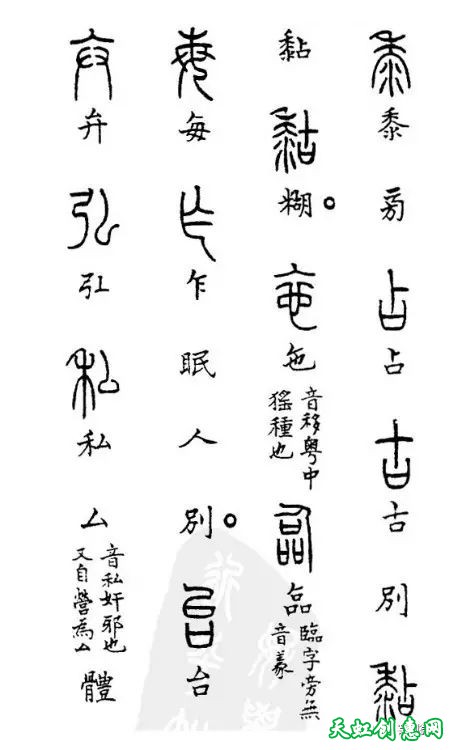 黍黍旁占占古古別黏
黏𪏻糊。㐌㐌
音移粵中
猺種也
臨字旁無
音義
每每乍乍眠人別。台台
弁弁弘弘私私厶
音私奸邪也
又自營為厶
體
天虹创意网